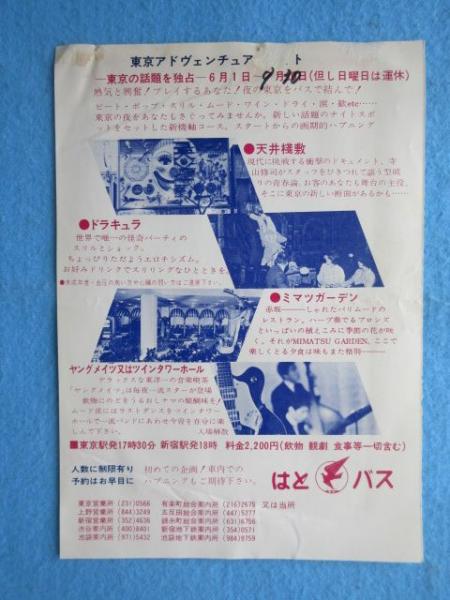 東京アドヴェンチュア ト
―東京の話題を独占―6月1日―9月30日(但し日曜日は運休)
熱気と興奮!プレイするあなた!夜の東京をバスで結んで!
ビート・ポップ・スリル・ムード・ワイン・ドライ・涙・歓etc……
東京の夜をあなたもさぐってみませんか。新しい話題のナイトスポ
ットをセットした新機軸コース。スタートからの画期的ハプニング
●天井棧敷
現代に挑戦する衝撃のドキュメント、寺
山修司がスタッフをひきつれて謳う型破
りの青春論。お客のあなたも舞台の主役。
そこに東京の新しい断面があるから……
●ドラキュラ
世界で唯一の怪奇パーティの
スリルとショック。
ちょっぴりただようエロチシズム。
お好みドリンクでスリリングなひとときを。
●未成年者・血圧の高い方や心臓の弱い方はご遠慮下さい。
●ミマツガーデン
赤坂――しゃれたパリムードの
レストラン。ハープ奏でるブロンズ
といっぱいの植えこみに季節の花が咲
く。それがMIMATSU GARDEN。ここで
楽しくとる夕食は味もまた格別――
ヤングメイツ又はツインタワーホール
デラックスな東洋一の音楽喫茶
「ヤングメイツ」は毎夜一流スターが登場
飲物にのどをうるおしナマの醍醐味を!
ムード派にはラストダンスをツインタワー
ホールで一流バンドにあわせ今宵を存分に楽
しんで下さい。 入場解散
■東京駅発17時30分 新宿駅発18時 料金2,200円(飲物 観劇 食事等一切含む)
人数に制限有り
予約はお早目に
初めての企画!車内での
ハプニングもご期待下さい。
はと バス
東京営業所 (231)0566 有楽町総合案内所 (216)2675 又は当所
上野営業所 (844)3249 五反田総合案内所 (447)5277
新宿営業所 (352)4636 錦糸町総合案内所 (631)6756
渋谷案内所 (400)8401 新宿地下鉄案内所 (354)0571
池袋案内所 (971)5432 池袋地下鉄案内所 (984)8759